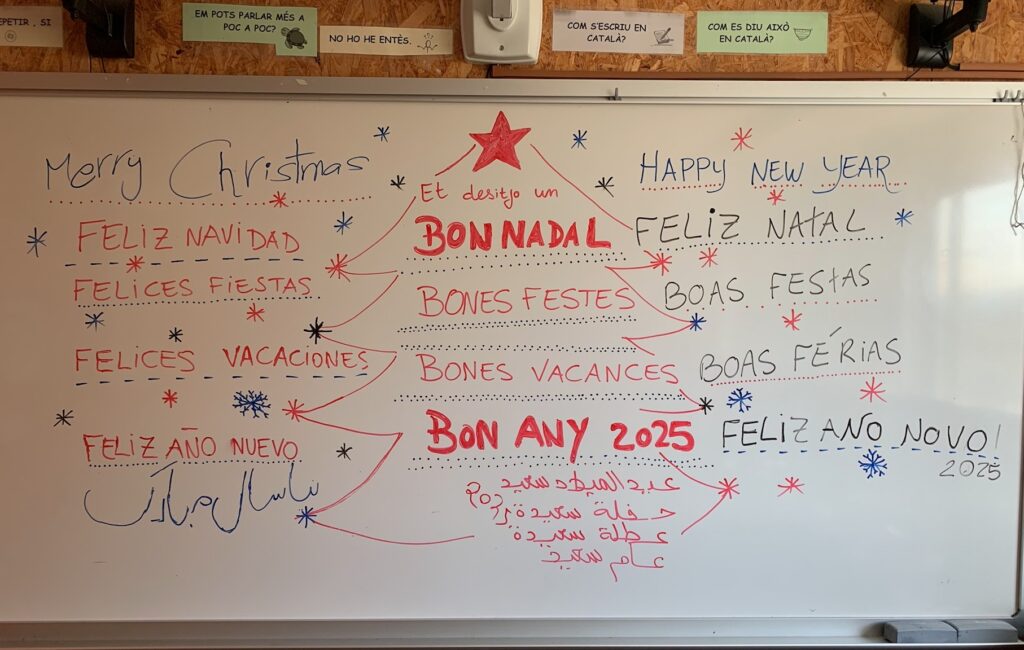 EPETIR, SI
EM POTS PARLAR MÉS A
POC A POC?
NO HO HE ENTÈS.
COM S'ESCRIU EN
CATALÀ?
COM ES DIU AIXÒ
EN CATALÀ?
Merry Christmas
FELIZ NAVIDAD
FELICES FIESTAS
FELICES VACACIONES
FELIZ AÑO NUEVO
Et desitjo un
BON NADAL
BONES FESTES
BONES VACANCES
BON ANY 2025
عيد الميلاد سعيد
حفلة سعيدة
عطلة سعيدة
عام سعيد
HAPPY NEW YEAR
FELIZ NATAL
BOAS FESTAS
BOAS FÉRIAS
FELIZ ANO NOVO!
2025